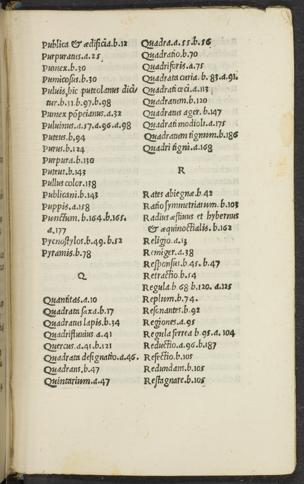 Publica & ædificia.b.12
Purpuratus.a.25
Pumex.b.30
Pumicosus.b.30
Puluis, hic puteolanus dici
tur.b.11.b.97.b.98
Pumex põpeianus.a.32
Puluinus.a.57.a.96.a.98
Puteus.b.94
Purus.b.124
Purpura.b.130
Puteut.b.143
Pullus color.138
Publicani.b.143
Puppis.a.158
Punctum.b.164.b.165.
a.177
Pycnostylos.b.49.b.52
Pyramis.b.78
Q
Quantitas.a.10
Quadrata saxa.b.17
Quadratus lapis.b.34
Quadrifluuius.a.41
Quercus.a.41.b.121
Quadrata designatio.a.46.
Quadrans.b.47
Quintarium.a.47
Quadra.a.55.b.56
Quadratio.b.70
Quadriforis.a.75
Quadrata curia.b.83.a.91.
Quadrati œci.a.113
Quadranum.b.120
Quadratus ager.b.147
Quadrati modioli.a.175
Quadratum tignum.b.186
Quadri tigni.a.168
R
Rates abiegnæ.b.42
Ratio symmetriarum.b.103
Radius æstiuus et hybernus
& æquinoctialis.b.162
Religio.a.13
Remiger.a.38
Responsus.b.45.b.47
Retractio.b.54
Regula.b 68 b.120.a.125
Replum.b.74.
Resonantes.b.92
Regiones.a.95
Regula ferrea b.95.a.104
Reductio.a.96.b.187
Refectio.b.105
Redundam.b.105
Restagnare.b.105